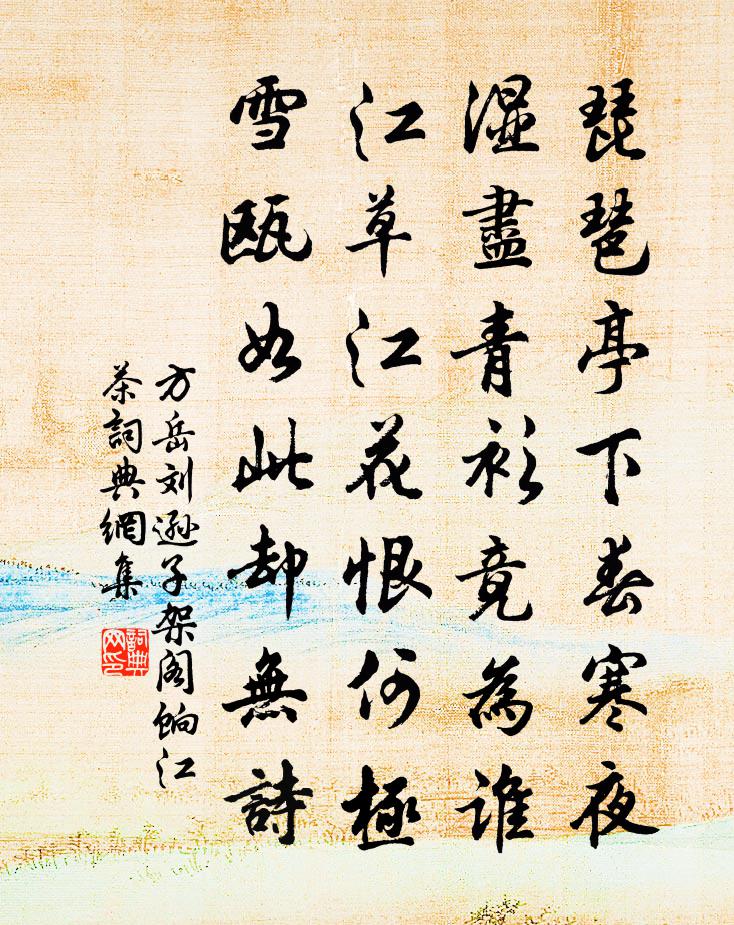 琵琶亭下春寒夜
湿盡青衫竟為誰
江草江花恨何極
雪甌如此却無詩
方岳刘遜子架阁餉江
茶詞典網集
詞典
网印